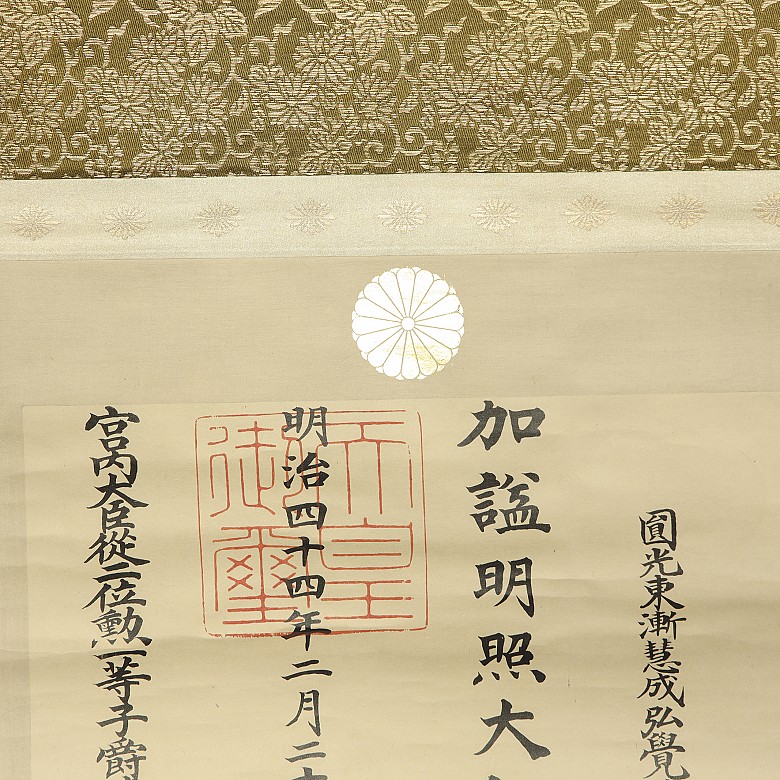 圓光東漸慧成弘覺
加諡明照大
明治四十四年二月二
天皇御璽
宮内大臣從二位勳一等子爵